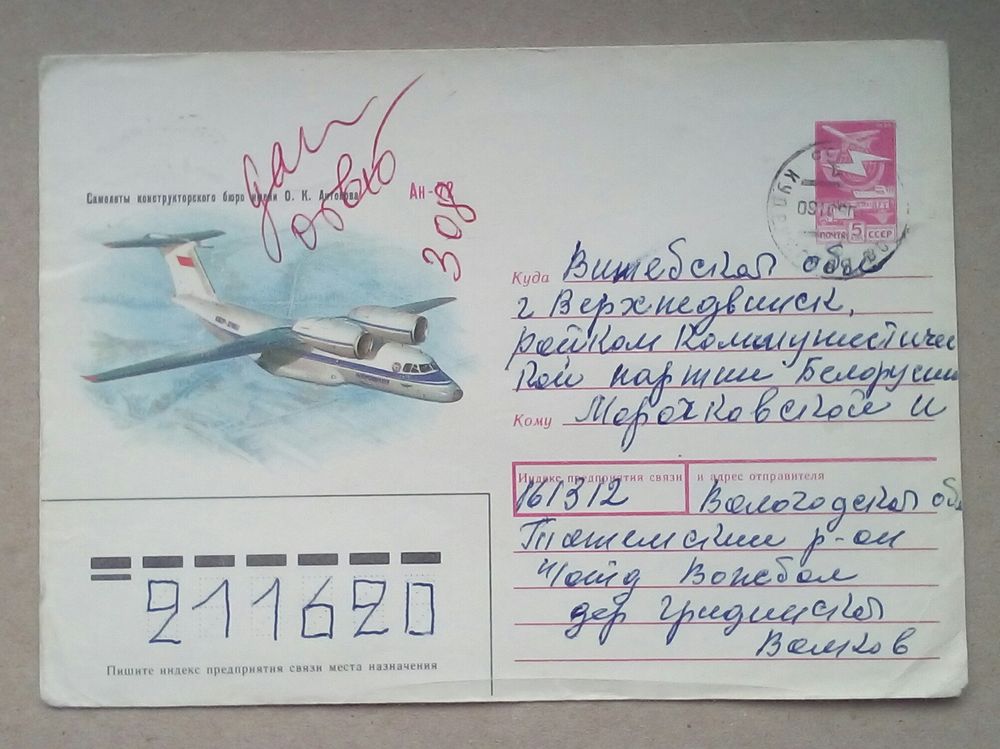 Самолеты конструкторского бюро имени О. К. Антонова
Ан-
ПОЧТА 5 СССР
Куда Витебская обл
г Верхнедвинск,
райком Коммунистичес
кой партии Белоруссии
Кому Морочковской И
Индекс предприятия связи и адрес отправителя
161312 Вологодская обл
Тотемский р-он
п/отд Вожбал
дер Гридинская
Волков
211620
Пишите индекс предприятия связи места назначения